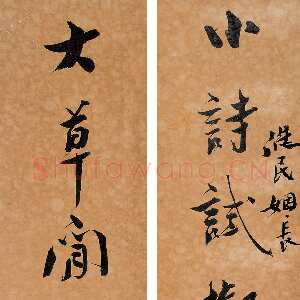 小詩試
民姻長
大草閒
Shufawang.CN